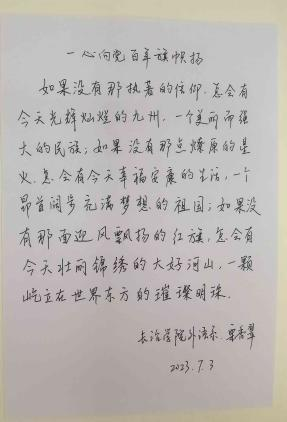 一心向党百年旗帜扬
如果没有那执著的信仰，怎会有
今天光辉灿烂的九州，一个美丽而强
大的民族；如果没有那点燎原的星
火，怎会有今天幸福安康的生活，一个
昂首阔步充满梦想的祖国；如果没
有那面迎风飘扬的红旗，怎会有
今天壮丽锦绣的大好河山，一颗
屹立在世界东方的璀璨明珠。
长治学院外语系 栗香翠
2023.7.3